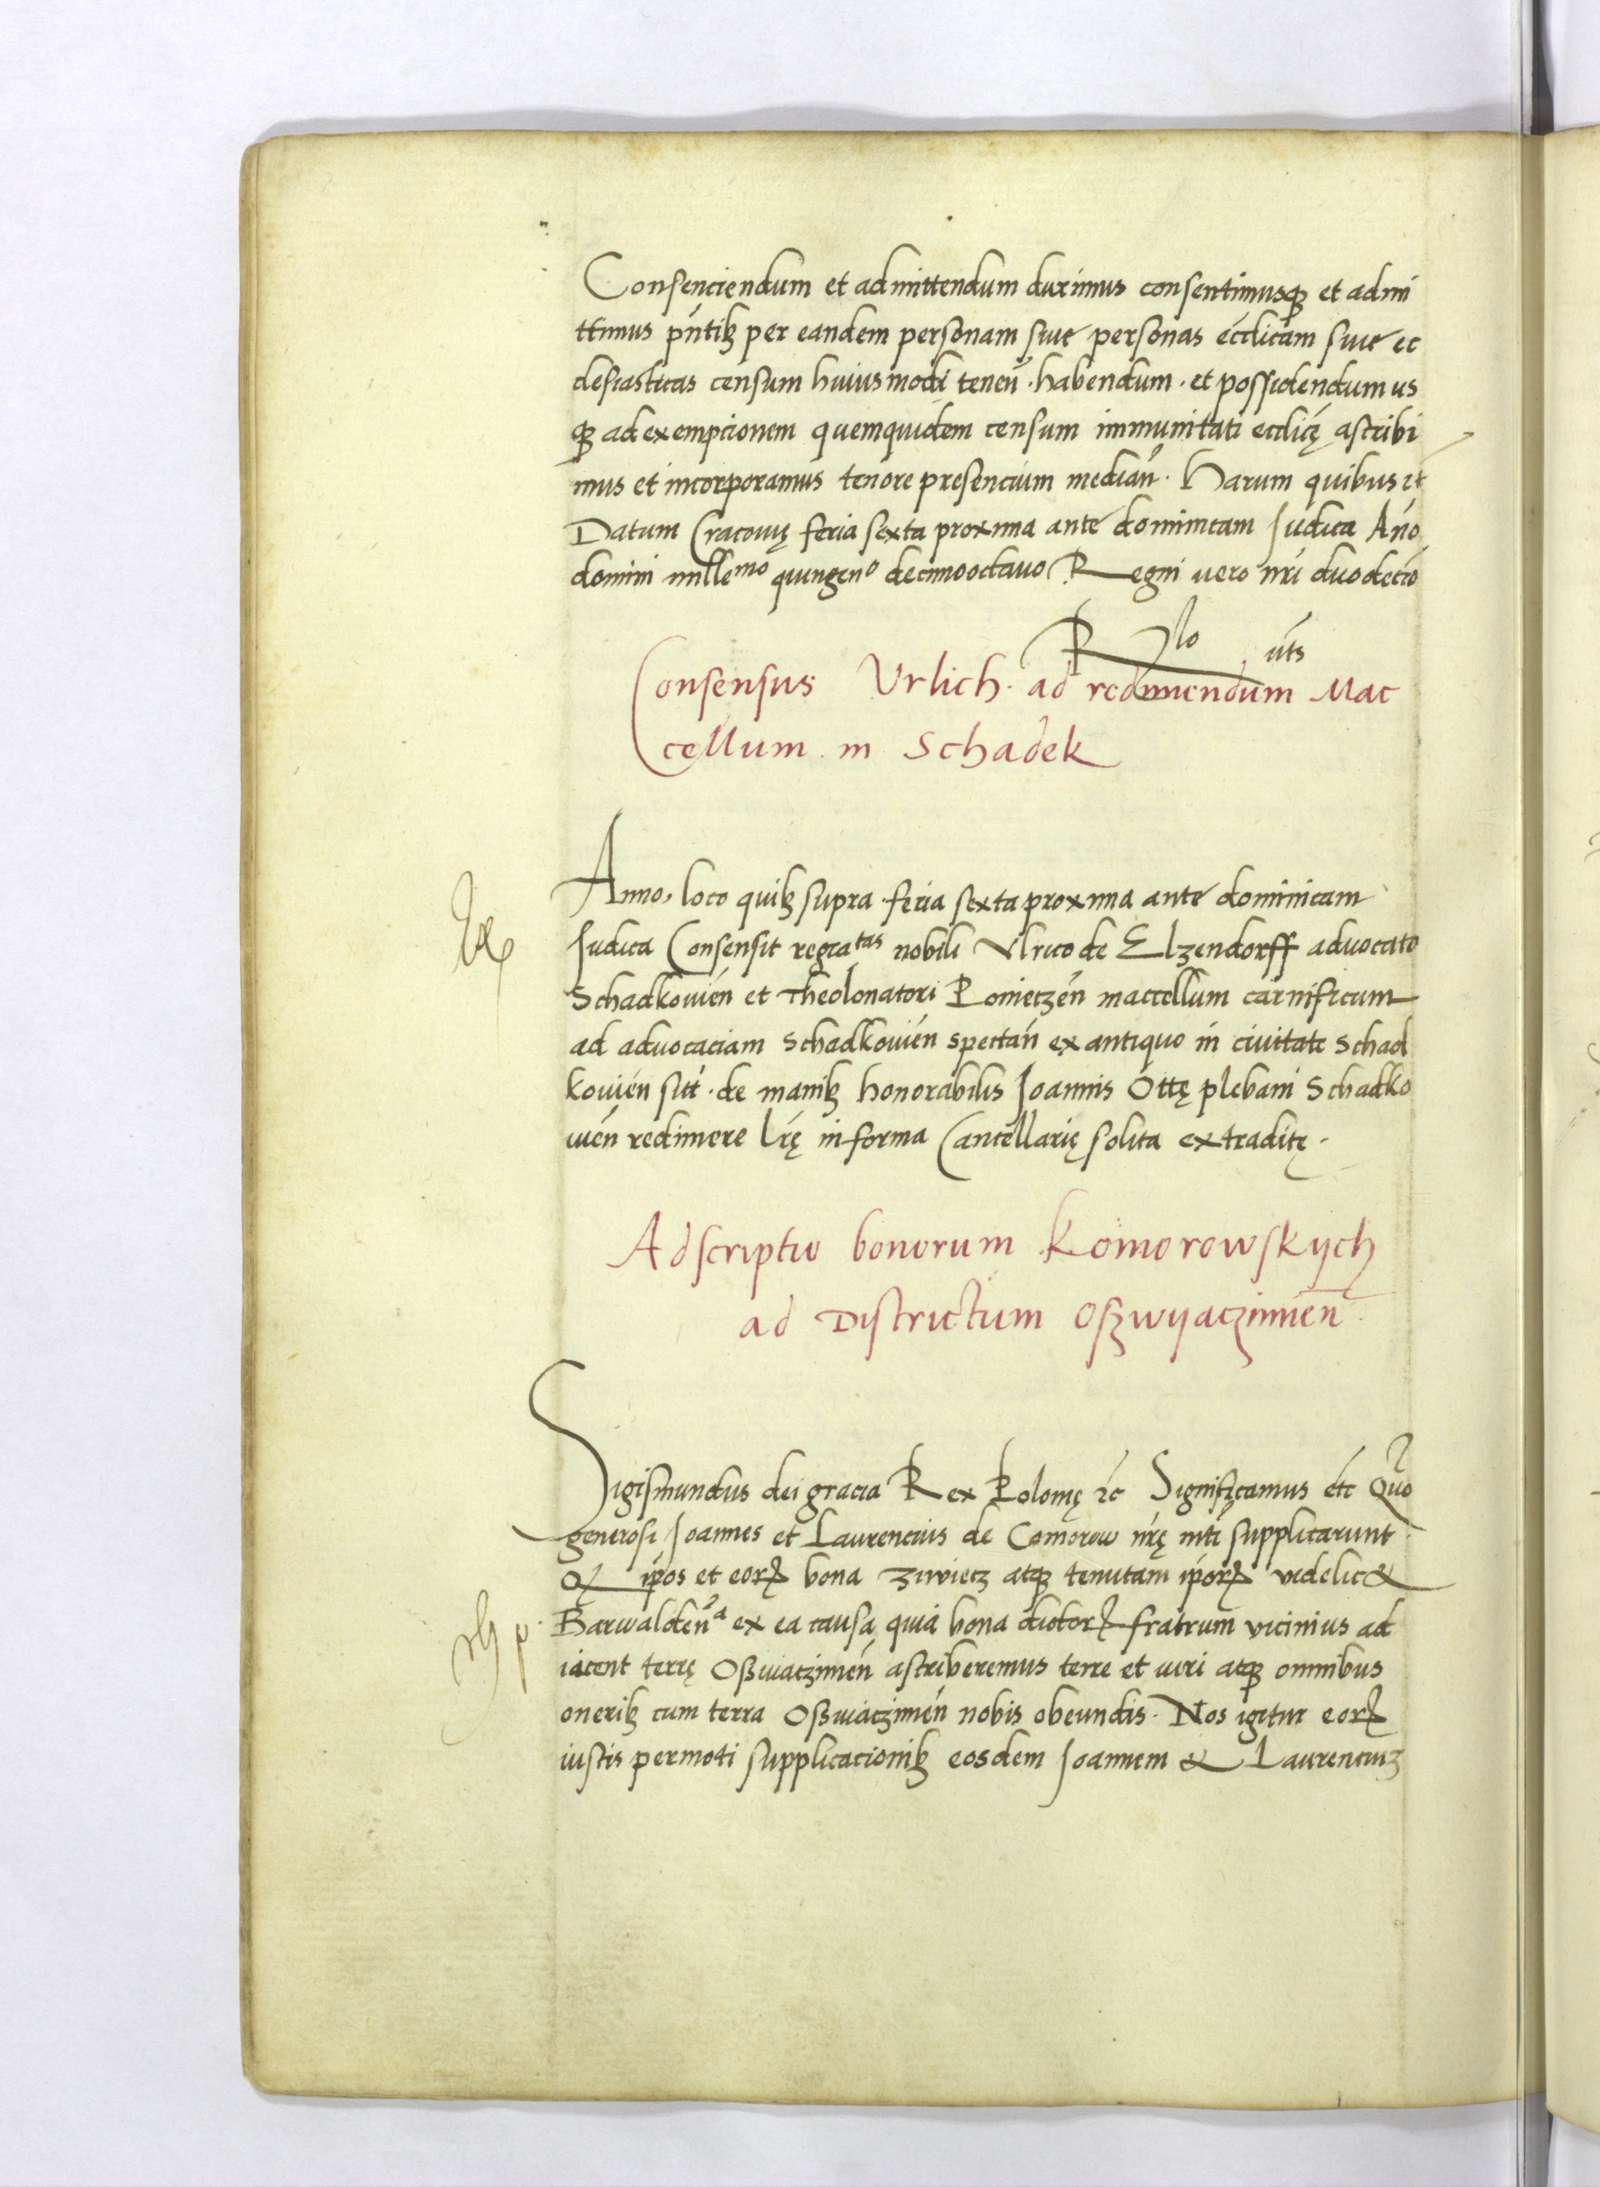 Consenciendum et admittendum duximus consentimusq̃ et admi
ttimus pñtibꝫ per eandem personam siue personas eccl̃icam siue ec
clesiasticas censum huiusmodi teneñ · habendum · et possidendum us
q̃ ad exempcionem quemquidem censum immunitati eccl̃icę ascribi
mus et incorporamus tenore presencium mediañ · Harum quibus ꝛc̃
Datum Cracouię feria sexta proxima ante dominicam Iudica Año
domini mille^mo quingen^o decimooctauo Regni vero nr̃i duodecio
R^lo ut̃s
Consensus Vrlich · ad redimendum Mac
cellum in Schadek
Anno, loco quibꝫ supra feria sexta proxima ante dominicam
Iudica Consensit regia^tas nobili Vlrico de Elzendorff aduocato
Schadkouieñ et Theolonatori Konieczeñ maccellum carnificum
ad aduocaciam Schadkouieñ spectañ ex antiquo in ciuitate Schad
kouieñ sit̃ · de manibꝫ honorabilis Ioannis Ottę plebani Schadko
uieñ redimere Lr̃ę in forma Cancellarię solita extraditę ·
Adscriptio bonorum Komorowskych
ad Districtum Oszwyaczimieñ
Sigismundus dei gracia Rex Polonię ꝛc̃ Significamus etc̃ Quo
generosi Ioannes et Laurencius de Comorow nr̃ę mti supplicarunt
Q ip̃os et eorꝝ bona Ziwiecz atq̃ tenutam ip̃orꝝ videlic&
Barwaldeñ^a ex ea causa quia bona dictorꝝ fratrum vicinius ad
iacent terrę Osswiaczimieñ ascriberemus terre et iuri atq̃ omnibus
oneribꝫ cum terra Osswiaczimieñ nobis obeundis · Nos igitur eorꝝ
iustis permoti supplicacionibꝫ eosdem Ioannem & Laurenciuꝫ